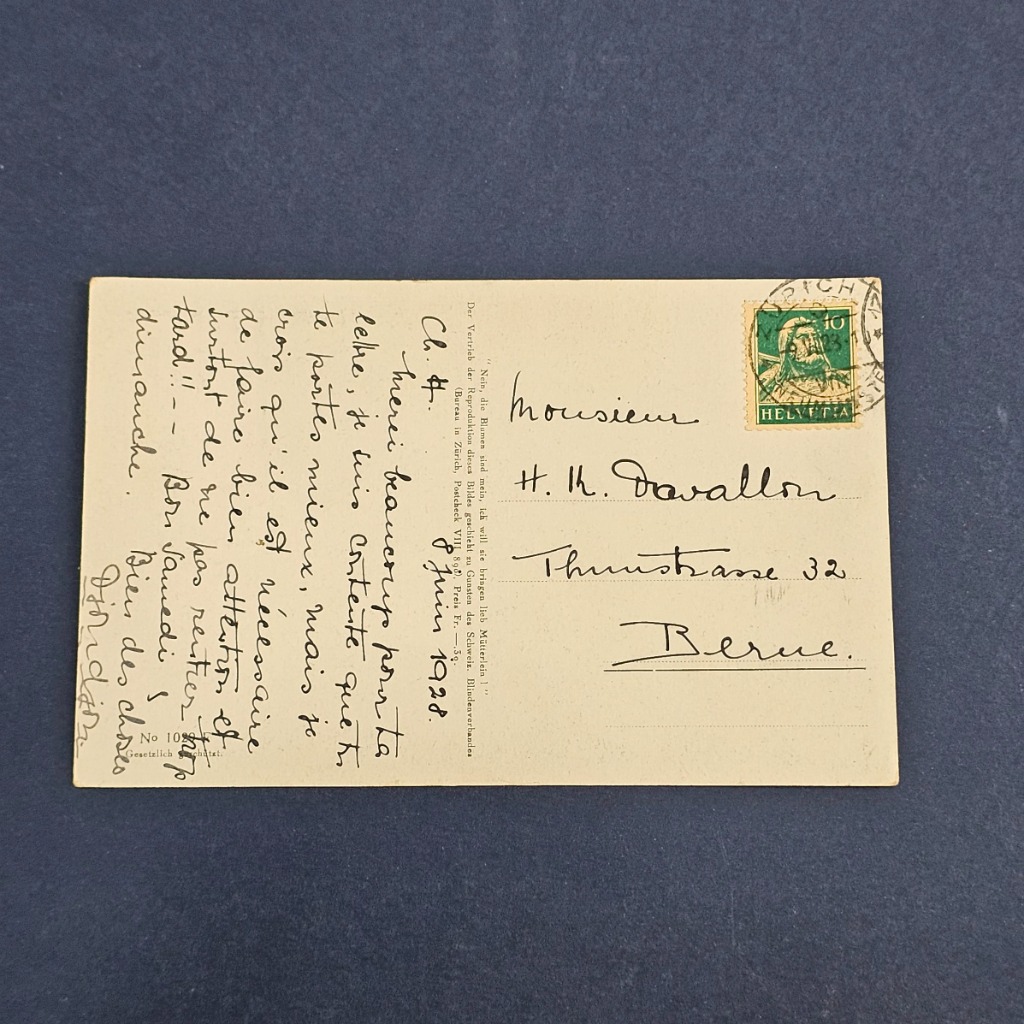 Ch. H.
8 Juin 1928.
Merci beaucoup pour ta
lettre, je suis contente que tu
te portes mieux, mais je
crois qu'il est nécessaire
de faire bien attention et
surtout de ne pas rentrer trop
tard!! - - Bon Samedi &
dimanche.
Bien des choses
"Nein, die Blumen sind mein, ich will sie bringen lieb Mütterlein!"
Der Vertrieb der Reproduktion dieses Bildes geschieht zu Gunsten des Schweiz. Blindenverbandes
(Bureau in Zürich, Postcheck VIII 898). Preis Fr. —.30.
No
Gesetzlich geschützt.
Monsieur
H. K. Davallon
Thunstrasse 32
Berne.
10
HELVETIA
ZÜRICH